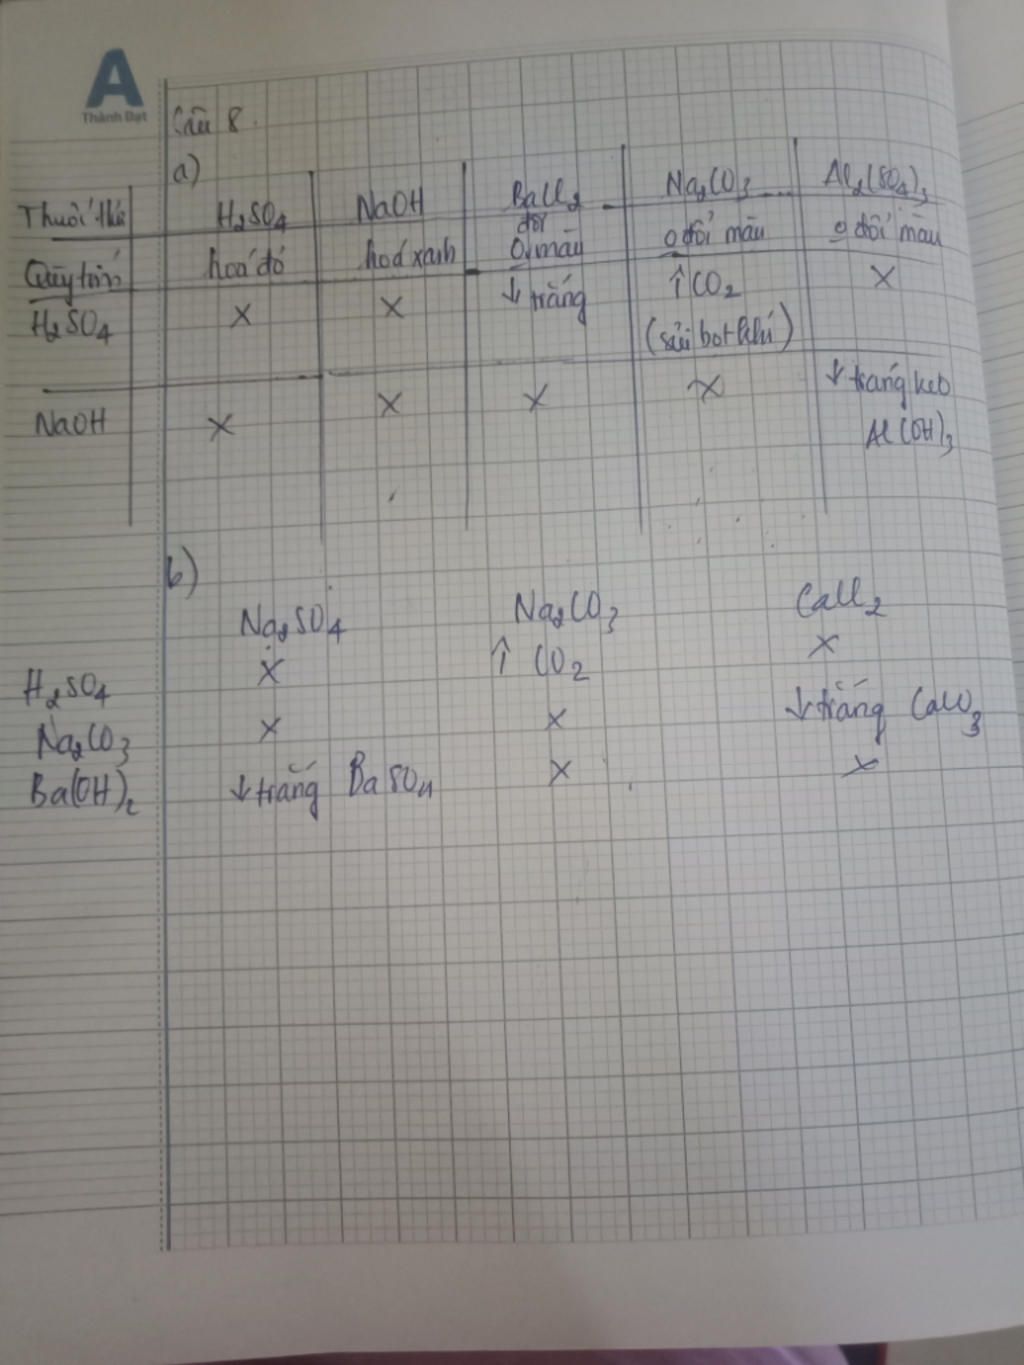 A
Thành Đạt
Câu 8.
a)
Thuốc thử H₂SO₄ NaOH BaCl₂ Na₂CO₃ Al₂(SO₄)₃
Quỳ tím hoá đỏ hoá xanh 0 đổi màu 0 đổi màu 0 đổi màu
H₂SO₄ X X ↓ trắng ↑ CO₂ X
(sủi bọt khí)
NaOH X X X X ↓ trắng keo
Al(OH)₃
b)
Na₂SO₄ Na₂CO₃ CaCl₂
H₂SO₄ X ↑ CO₂ X
Na₂CO₃ X X ↓ trắng CaCO₃
Ba(OH)₂ ↓ trắng BaSO₄ X X